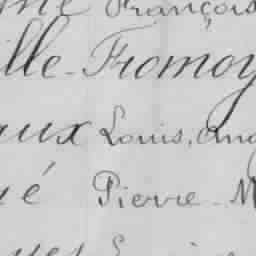 François
ille-Fromoy
aux Louis, Aug
é Pierre-M